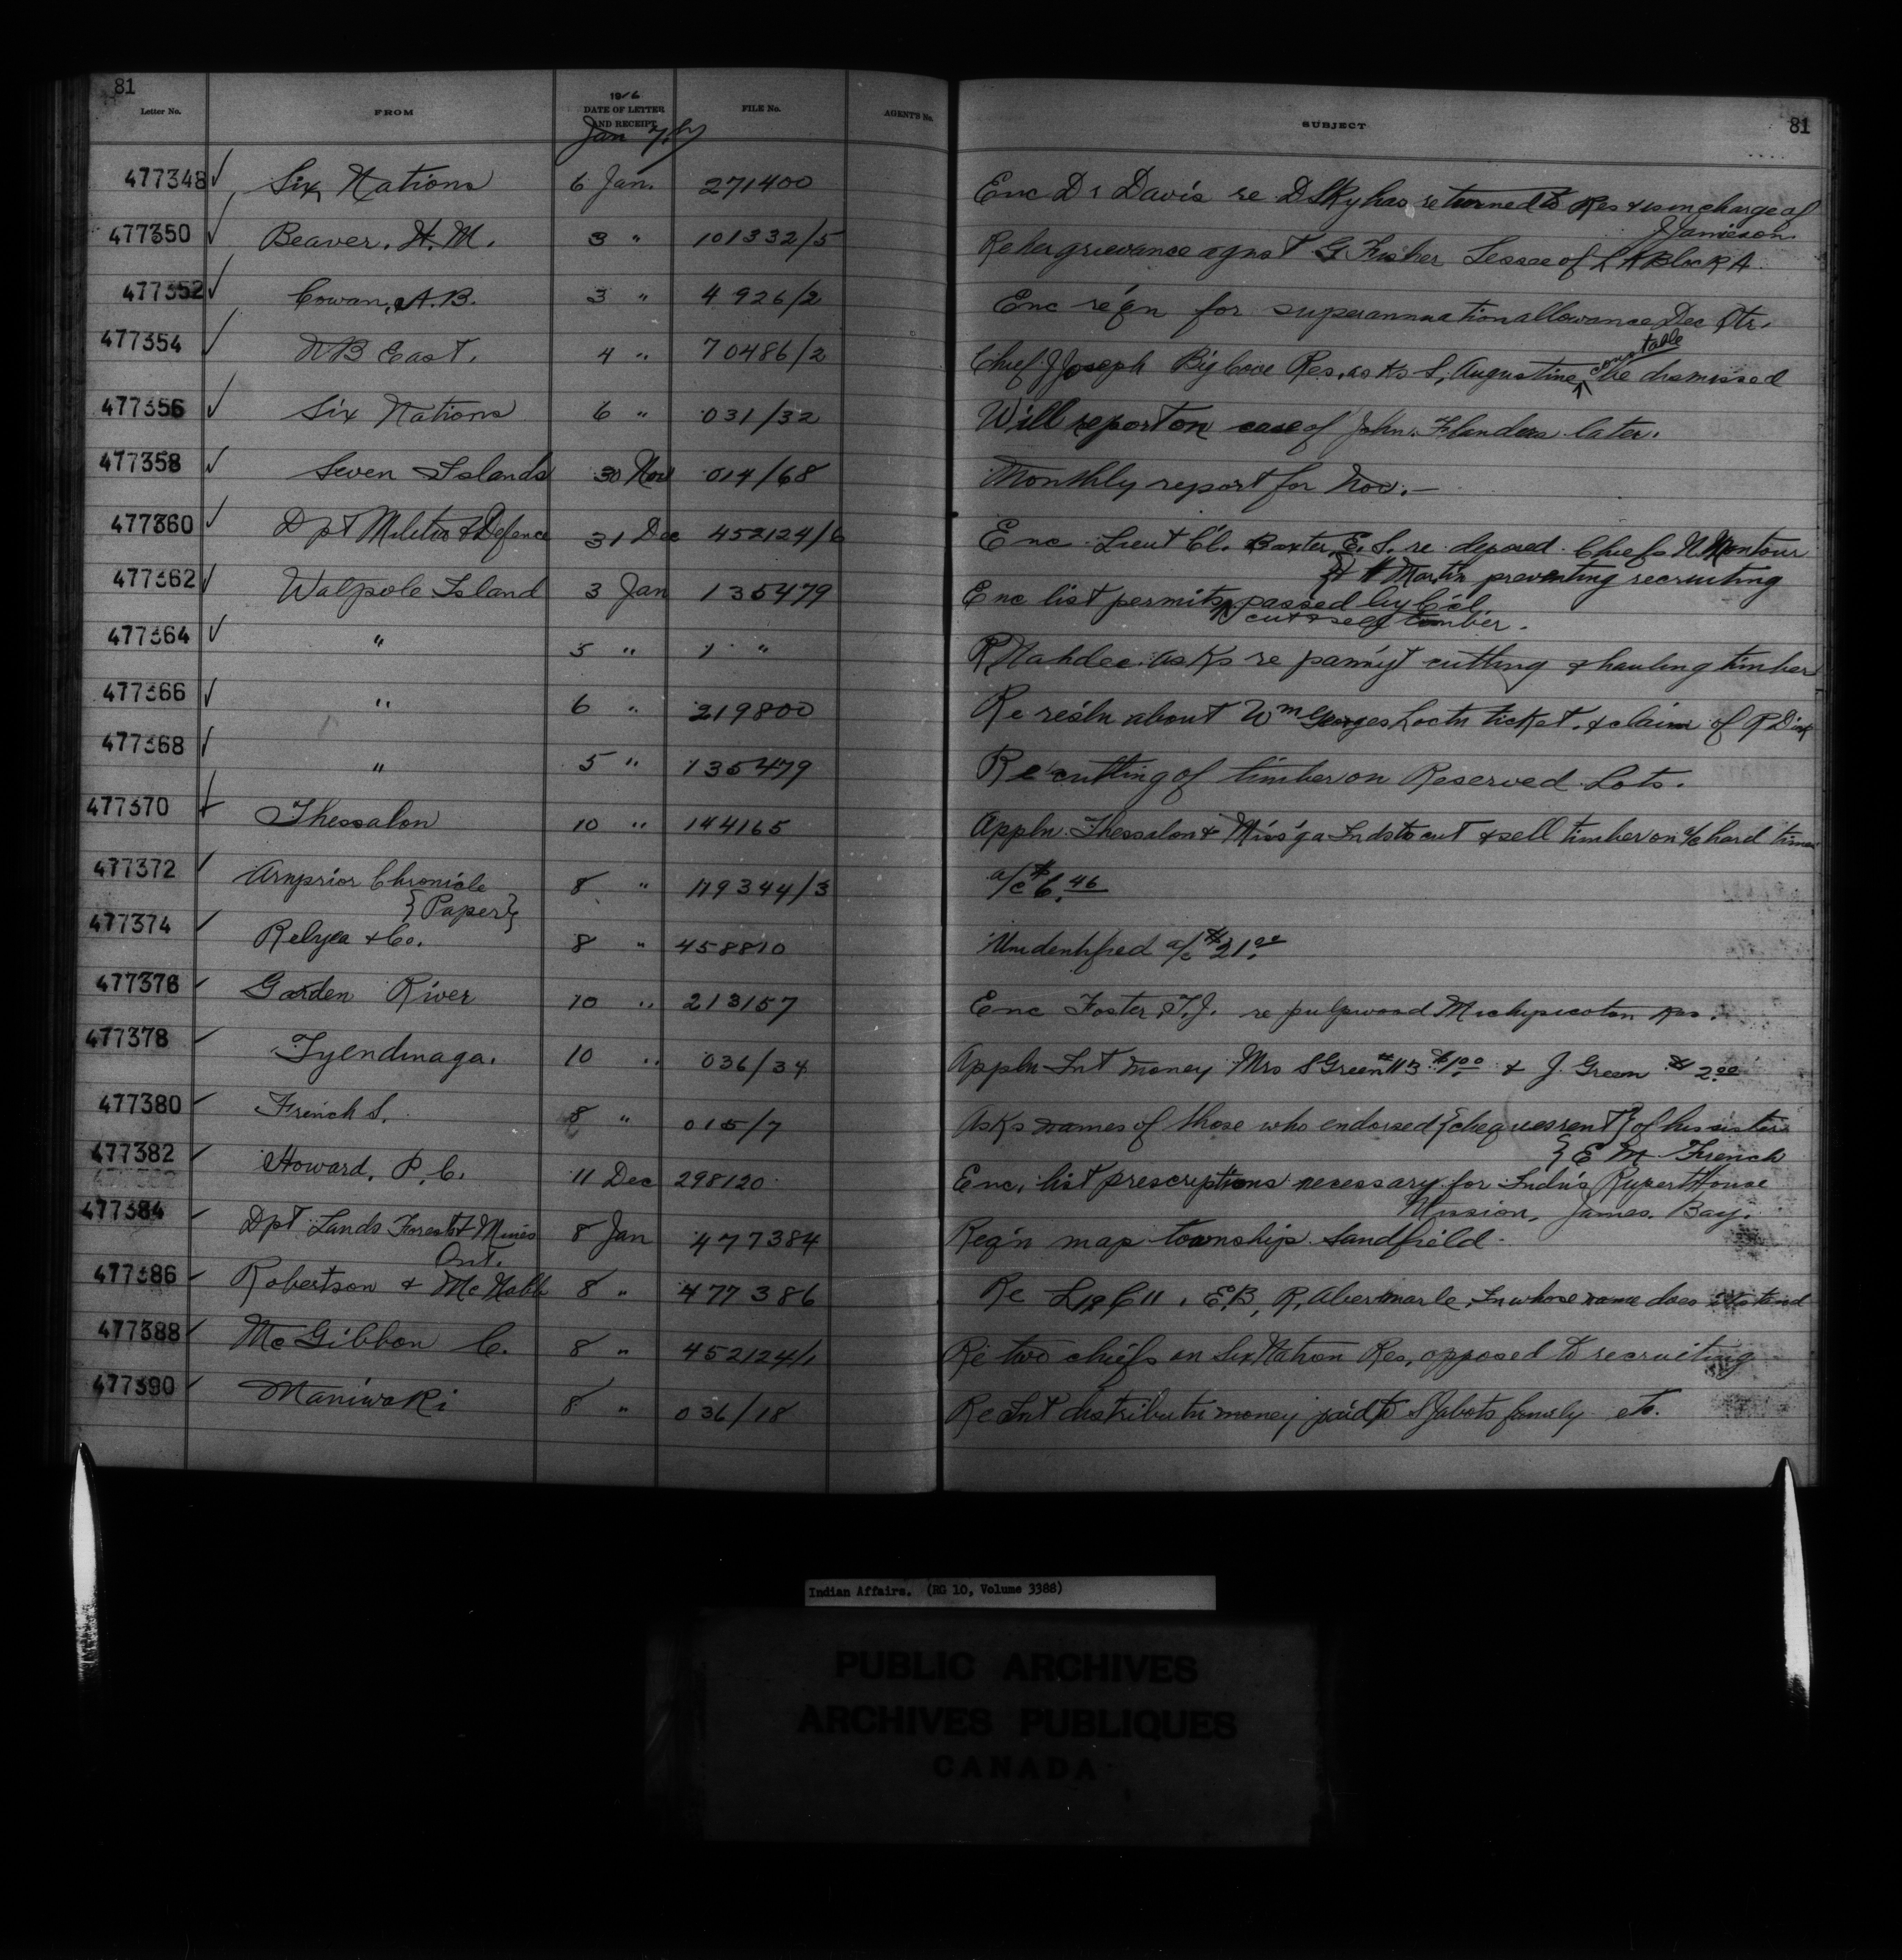 81
Letter No. FROM 1916 DATE OF LETTER AND RECEIPT FILE No. AGENTS No. SUBJECT 81
Jan
477348 ✓ Six Nations 6 Jan. 271400 Enc Dr Davis re D Sky has returned to Res & is in charge of
J Jamieson
477350 ✓ Beaver, H. M. 3 " 101332/5 Re her grievance agnst G Fisher Lessee of Block A
477352 ✓ Cowan, A. B. 3 " 4926/2 Enc re'qn for superannuation allowance Dec Qtr.
477354 ✓ NB East. 4 " 70486/2 Chief J Joseph Big Cove Res, asks S, Augustine constable be dismissed
477356 ✓ Six Nations 6 " 031/32 Will report on case of John Flanders later.
477358 ✓ Seven Islands 30 Nov 014/68 Monthly report for Nov. —
477360 ✓ Dpt Militia & Defence 31 Dec 452124/6 Enc Lieut Cl. Baxter, E. S. re deposed Chiefs N. Montour
& Martin preventing recruiting
477362 ✓ Walpole Island 3 Jan 135479 Enc list permits passed by C'cl
cut & sell timber.
477364 ✓ " 5 " " R Nahdee asks re pam'yt cutting & hauling timber
477366 ✓ " 6 " 219800 Re res'ln about Wm Georges Loctn ticket, & claim of R
477368 ✓ " 5 " 135479 Re cutting of timber on Reserved Lots.
477370 ✓ Thessalon 10 " 144165 Appln Thessalon & Miss'ga Inds to cut & sell timber on a/c hard times
477372 ✓ Arnprior Chronicle 8 " 179344/3 a/c $6.46
{Paper}
477374 ✓ Relyea & Co. 8 " 458810 Unidentified a/c $21.00
477376 ✓ Garden River 10 " 213157 Enc Foster, T. J. re pulpwood Michipicoten Res.
477378 ✓ Tyendinaga. 10 " 036/34 Appln Int money Mrs S Green #113 $1.00 & J. Green $2.00
477380 ✓ French S. 8 " 015/7 Asks names of those who endorsed {cheques rent} of his sister
{E M French
477382 ✓ Howard, P. C. 11 Dec 298120 Enc, list prescriptions necessary for Indns Rupert House
Mission, James. Bay.
477384 ✓ Dpt Lands Forests & Mines 8 Jan 477384 Req'n map township Sandfield.
Ont.
477386 ✓ Robertson & McNabb 8 " 477386 Re L 12 C 11, E.B, R, Abermarle, In whose name does it stand
477388 ✓ McGibbon C. 8 " 452124/1 Re two chiefs on Six Nation Res, opposed to recruiting
477390 ✓ Maniwaki 8 " 036/18 Re Int distributn money paid to S Jabots family etc.
Indian Affairs. (RG 10, Volume 3388)
PUBLIC ARCHIVES
ARCHIVES PUBLIQUES
CANADA